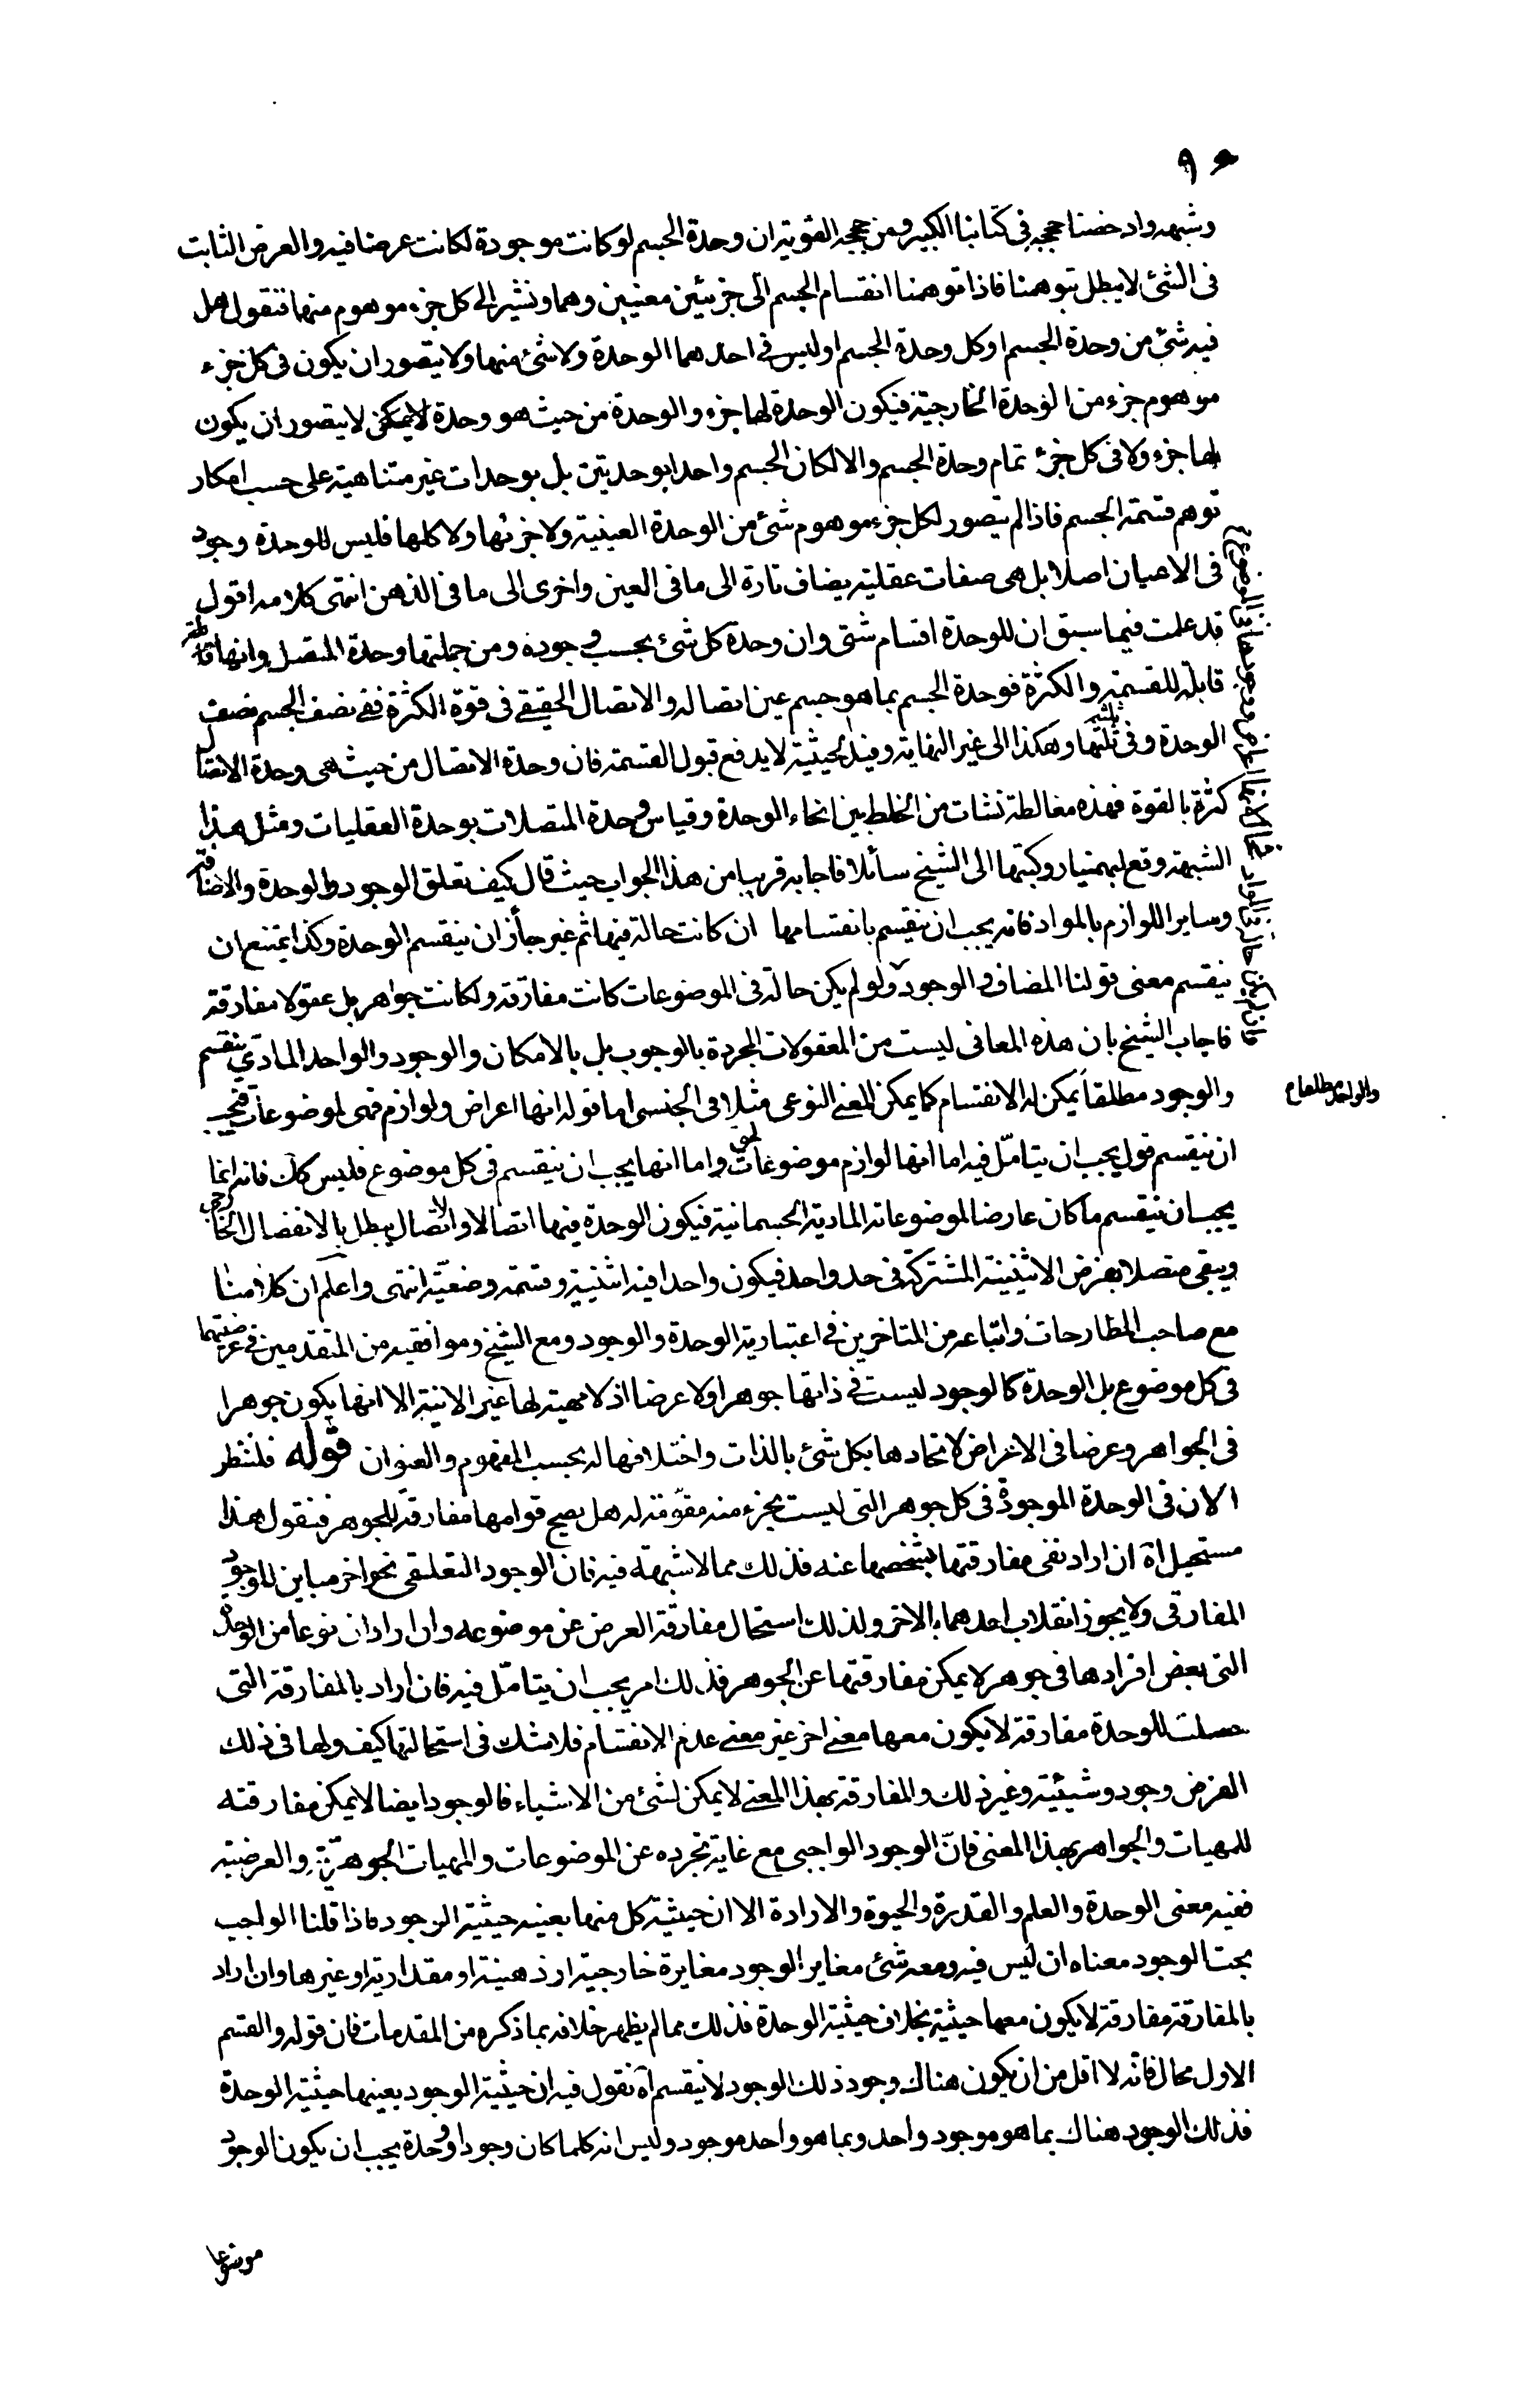 ٩٠
وشبهه وادحضنا حججه في كتابنا الكبير ومن حججه القوية ان وحدة الجسم لو كانت موجودة لكانت عرضا فيه والعرض الثابت
في الشئ لا يبطل بتوهمنا فاذا توهمنا انقسام الجسم الى جزئين معينين وهما ونشير الى كل جزء موهوم منهما فنقول هل
فيه شئ من وحدة الجسم او كل وحدة الجسم او ليس في احدهما الوحدة ولا شئ منها ولا يتصور ان يكون في كل جزء
موهوم جزء من الوحدة الخارجية فيكون الوحدة لها جزء والوحدة من حيث هو وحدة لا يمكن لا يتصور ان يكون
لها جزء ولا في كل جزء تمام وحدة الجسم والا لكان الجسم واحدا بوحدتين بل بوحدات غير متناهية على حسب امكان
توهم قسمة الجسم فاذا لم يتصور لكل جزء موهوم شئ من الوحدة العينية ولا جزئها ولا كلها فليس للوحدة وجود
في الاعيان اصلا بل هي صفات عقلية يضاف تارة الى ما في العين واخرى الى ما في الذهن انتهى كلامه اقول
قد علمت فيما سبق ان للوحدة اقسام شتى وان وحدة كل شئ بحسب وجوده ومن جملتها وحدة المتصل وانها
قابلة للقسمة والكثرة فوحدة الجسم بما هو جسم عين اتصاله والاتصال الحقيقي في قوة الكثرة ففي نصف الجسم نصف
الوحدة وفي ثلثها وهكذا الى غير النهاية وقيد الحيثية لا يدفع قبول القسمة فان وحدة الاتصال من حيث هي وحدة الاتصال
كثرة بالقوة فهذه مغالطة نشات من الخلط بين انحاء الوحدة وقياس وحدة المتصلات بوحدة العقليات ومثل هذا
الشبهة وقع لبهمنيار وكتبها الى الشيخ سائلا فاجابه قريبا من هذا الجواب حيث قال كيف تعلق الوجود والوحدة والاضافة
وساير اللوازم بالمواد فانه يجب ان ينقسم بانقسامها ان كانت حالة فيها ثم غير جائز ان ينقسم الوحدة وكذا يمتنع ان
ينقسم معنى قولنا المضاف والوجود ولو لم يكن حالة في الموضوعات كانت مفارقة ولكانت جواهر بل عقولا مفارقة
فاجاب الشيخ بان هذه المعاني ليست من المعقولات المجردة بالوجوب بل بالامكان والوجود والواحد المادي ينقسم
والوجود مطلقا يمكن له الانقسام كما يمكن للمعنى النوعي مثلا في الجنسي اما قوله انها اعراض ولوازم فهي لموضوعات فيجب
والواحد مطلقا م
ان ينقسم قول يجب ان يتامّل فيه اما انها لوازم موضوعات وما انها يجب ان ينقسم في كل موضوع فليس كك فانه انما
يجب ان ينقسم ما كان عارضا لموضوعاته المادية الجسمانية فيكون الوحدة فيها اتصالا والاتصال يبطل بالانفصال الخارجي
ويبقى متصلا بعرض الاثنينية المشتركة في حد واحد فيكون واحدا فيه اثنينية وقسمة وضعيّة انتهى واعلم ان كلامنا
مع صاحب المطارحات واتباعه من المتاخرين في اعتبارية الوحدة والوجود ومع الشيخ وموافقيه من المتقدمين في عرضيتهما
في كل موضوع بل الوحدة كالوجود ليست في ذاتها جوهرا ولا عرضا اذ لا مهية لها غير الانية الا انها يكون جوهرا
في الجواهر وعرضا في الاعراض لاتحادها بكل شئ بالذات واختلافها له بحسب المفهوم والعنوان قوله فلننظر
الان في الوحدة الموجودة في كل جوهر التي ليست بجزء منه مقوّمة له هل يصح قوامها مفارقة للجوهر فنقول هذا
مستحيل اه ان اراد نفي مفارقتها بشخصها عنه فذلك مما لا شبهة فيه فان الوجود التعلقي نحو اخر مباين للوجود
المفارقي ولا يجوز انقلاب احدهما بالاخر ولذلك استحال مفارقة العرض عن موضوعه وان اراد ان نوعا من الوحدة
التي بعض افرادها في جوهر لا يمكن مفارقتها عن الجوهر فذلك امر يجب ان يتامّل فيه فان اراد بالمفارقة التي
حصلت للوحدة مفارقة لا يكون معها معنى اخر غير معنى عدم الانقسام فلا شك في استحالتها كيف ولها في ذلك
الفرض وجود وشيئية وغير ذلك والمفارقة بهذا المعنى لا يمكن لشئ من الاشياء فالوجود ايضا لا يمكن مفارقته
للمهيات والجواهر بهذا المعنى فانّ الوجود الواجبي مع غاية تجرده عن الموضوعات والمهيات الجوهريّة والعرضية
ففيه معنى الوحدة والعلم والقدرة والحيوة والارادة الا ان حيثية كل منها بعينه حيثية الوجود فاذا قلنا الواجب
بحت الوجود معناه ان ليس فيه ومعه شئ مغاير الوجود مغايرة خارجية او ذهنية او مقدارية او غيرها وان اراد
بالمفارقة مفارقة لا يكون معها حيثية بخلاف حيثية الوحدة فذلك مما لم يظهر خلافه بما ذكره من المقدمات فان قوله والقسم
الاول محال فانه لا اقل من ان يكون هناك وجود ذلك الوجود لا ينقسم اه نقول فيه ان حيثية الوجود بعينها حيثية الوحدة
فذلك الوجود هناك بما هو موجود واحد وبما هو واحد موجود وليس انه كلما كان وجودا ووحدة يجب ان يكون الوجود
موضوعا